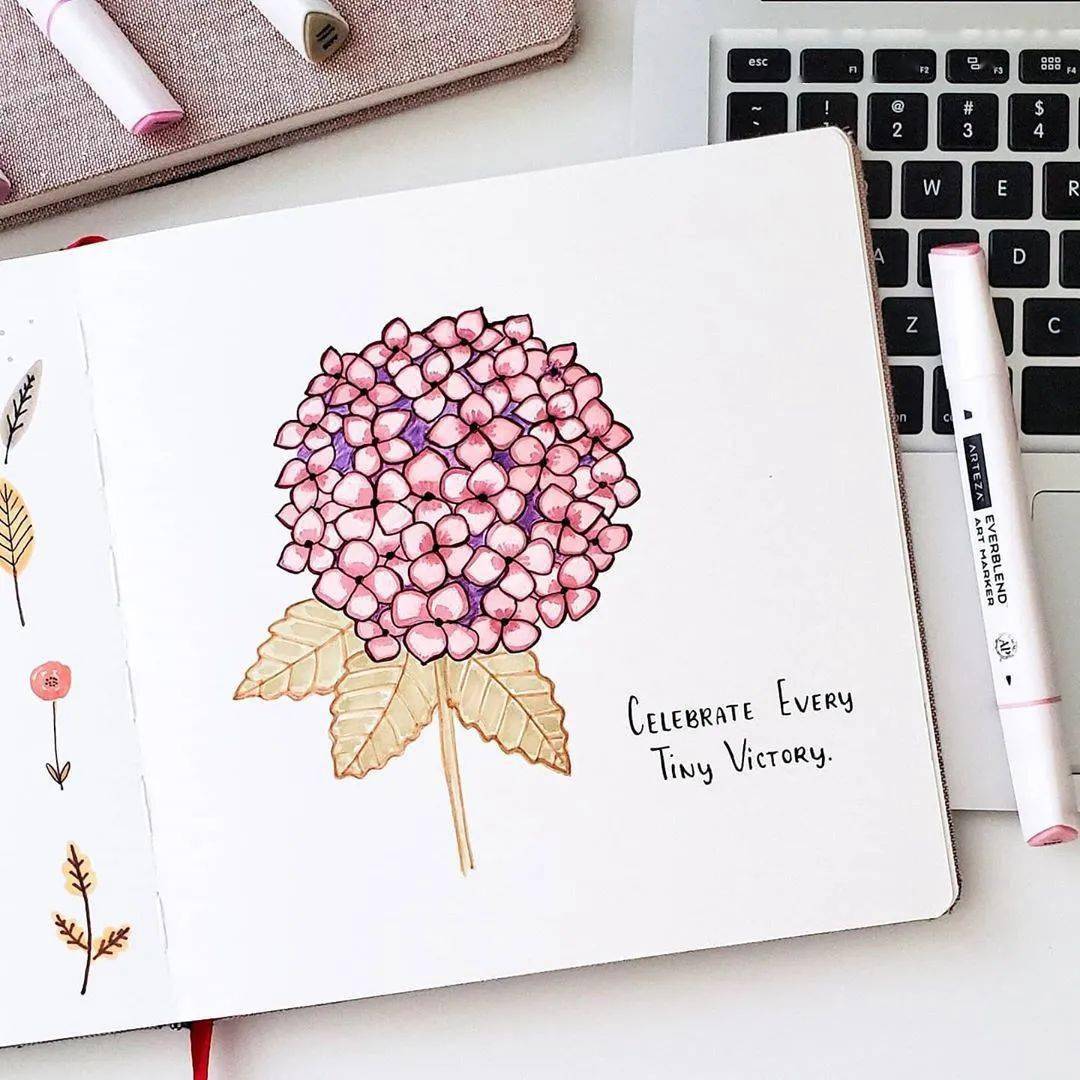 esc
F1
F2
F3
F4
~
`
!
@
2
#
3
$
4
W
E
R
A
D
Z
C
CELEBRATE EVERY
TINY VICTORY.
ARTEZA
EVERBLEND
ART MARKER
AP